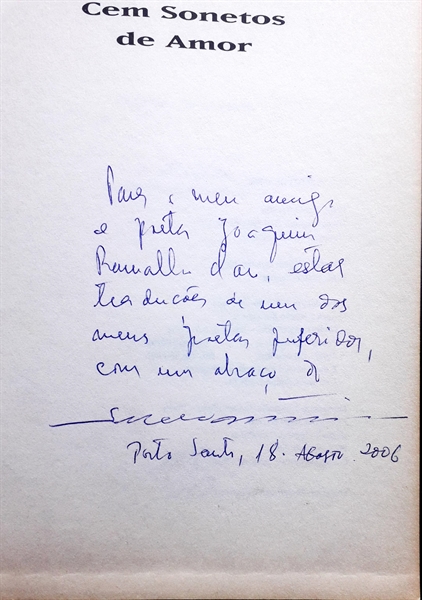 Cem Sonetos
de Amor
Para o meu amigo
e poeta Joaquim
estas
traduções de um dos
meus poetas preferidos,
com um abraço de
Porto Santo, 18. Agosto 2006